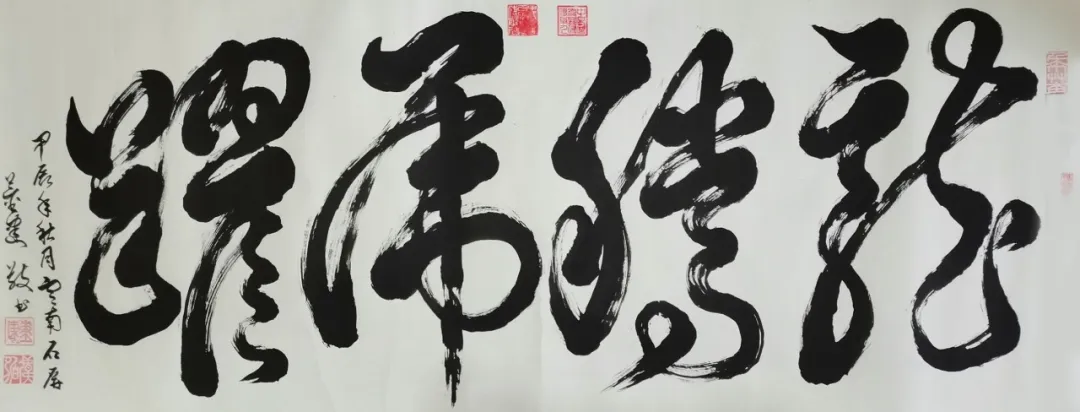 龍騰虎躍
甲辰年秋月雲南石屏
敬書